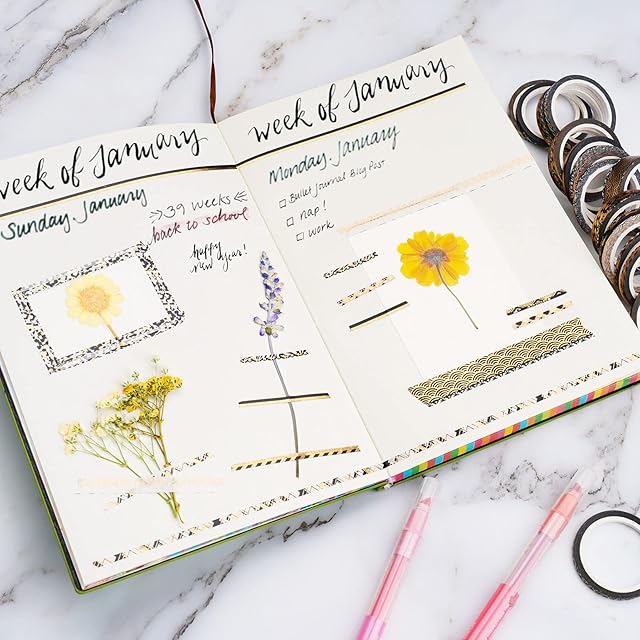 week of January
Sunday. January
>>39 weeks<<
back to school
happy
new year!
week of January
Monday. January
Bullet Journal Blog Post
nap!
work